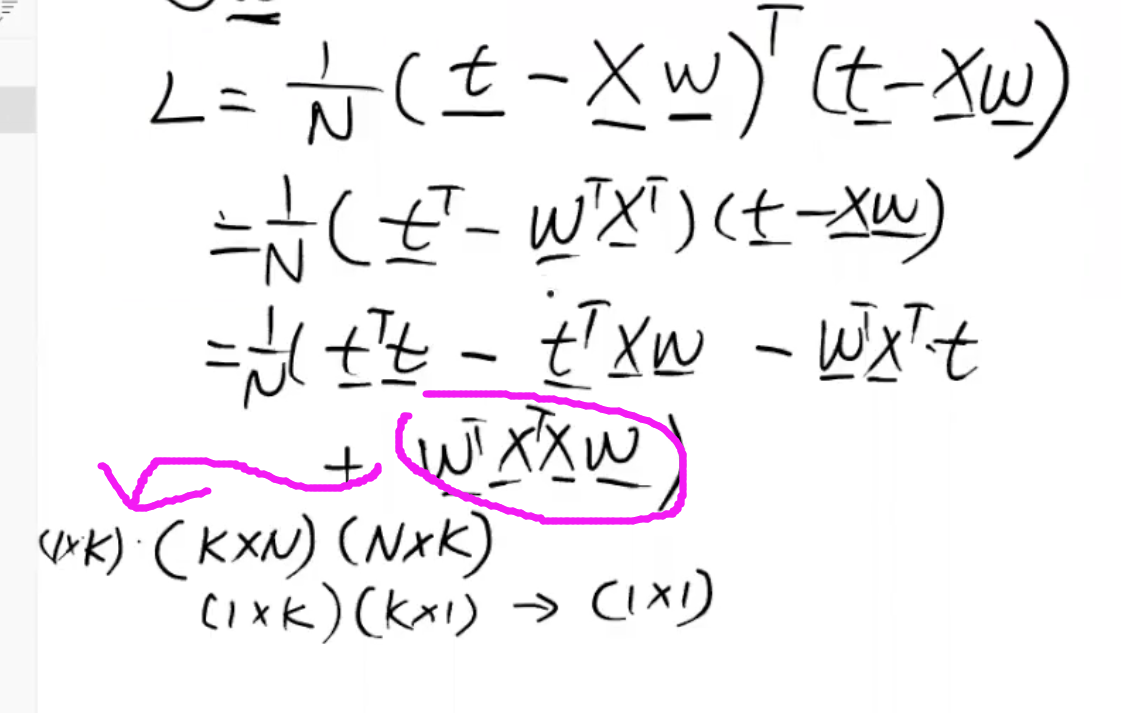 L = 1/N (t - Xw)ᵀ (t - Xw)
= 1/N (tᵀ - wᵀXᵀ) (t - Xw)
= 1/N ( tᵀt - tᵀXw - wᵀXᵀ·t
+ wᵀXᵀXw )
(1×K)·(K×N)(N×K)
(1×K)(K×1) → (1×1)